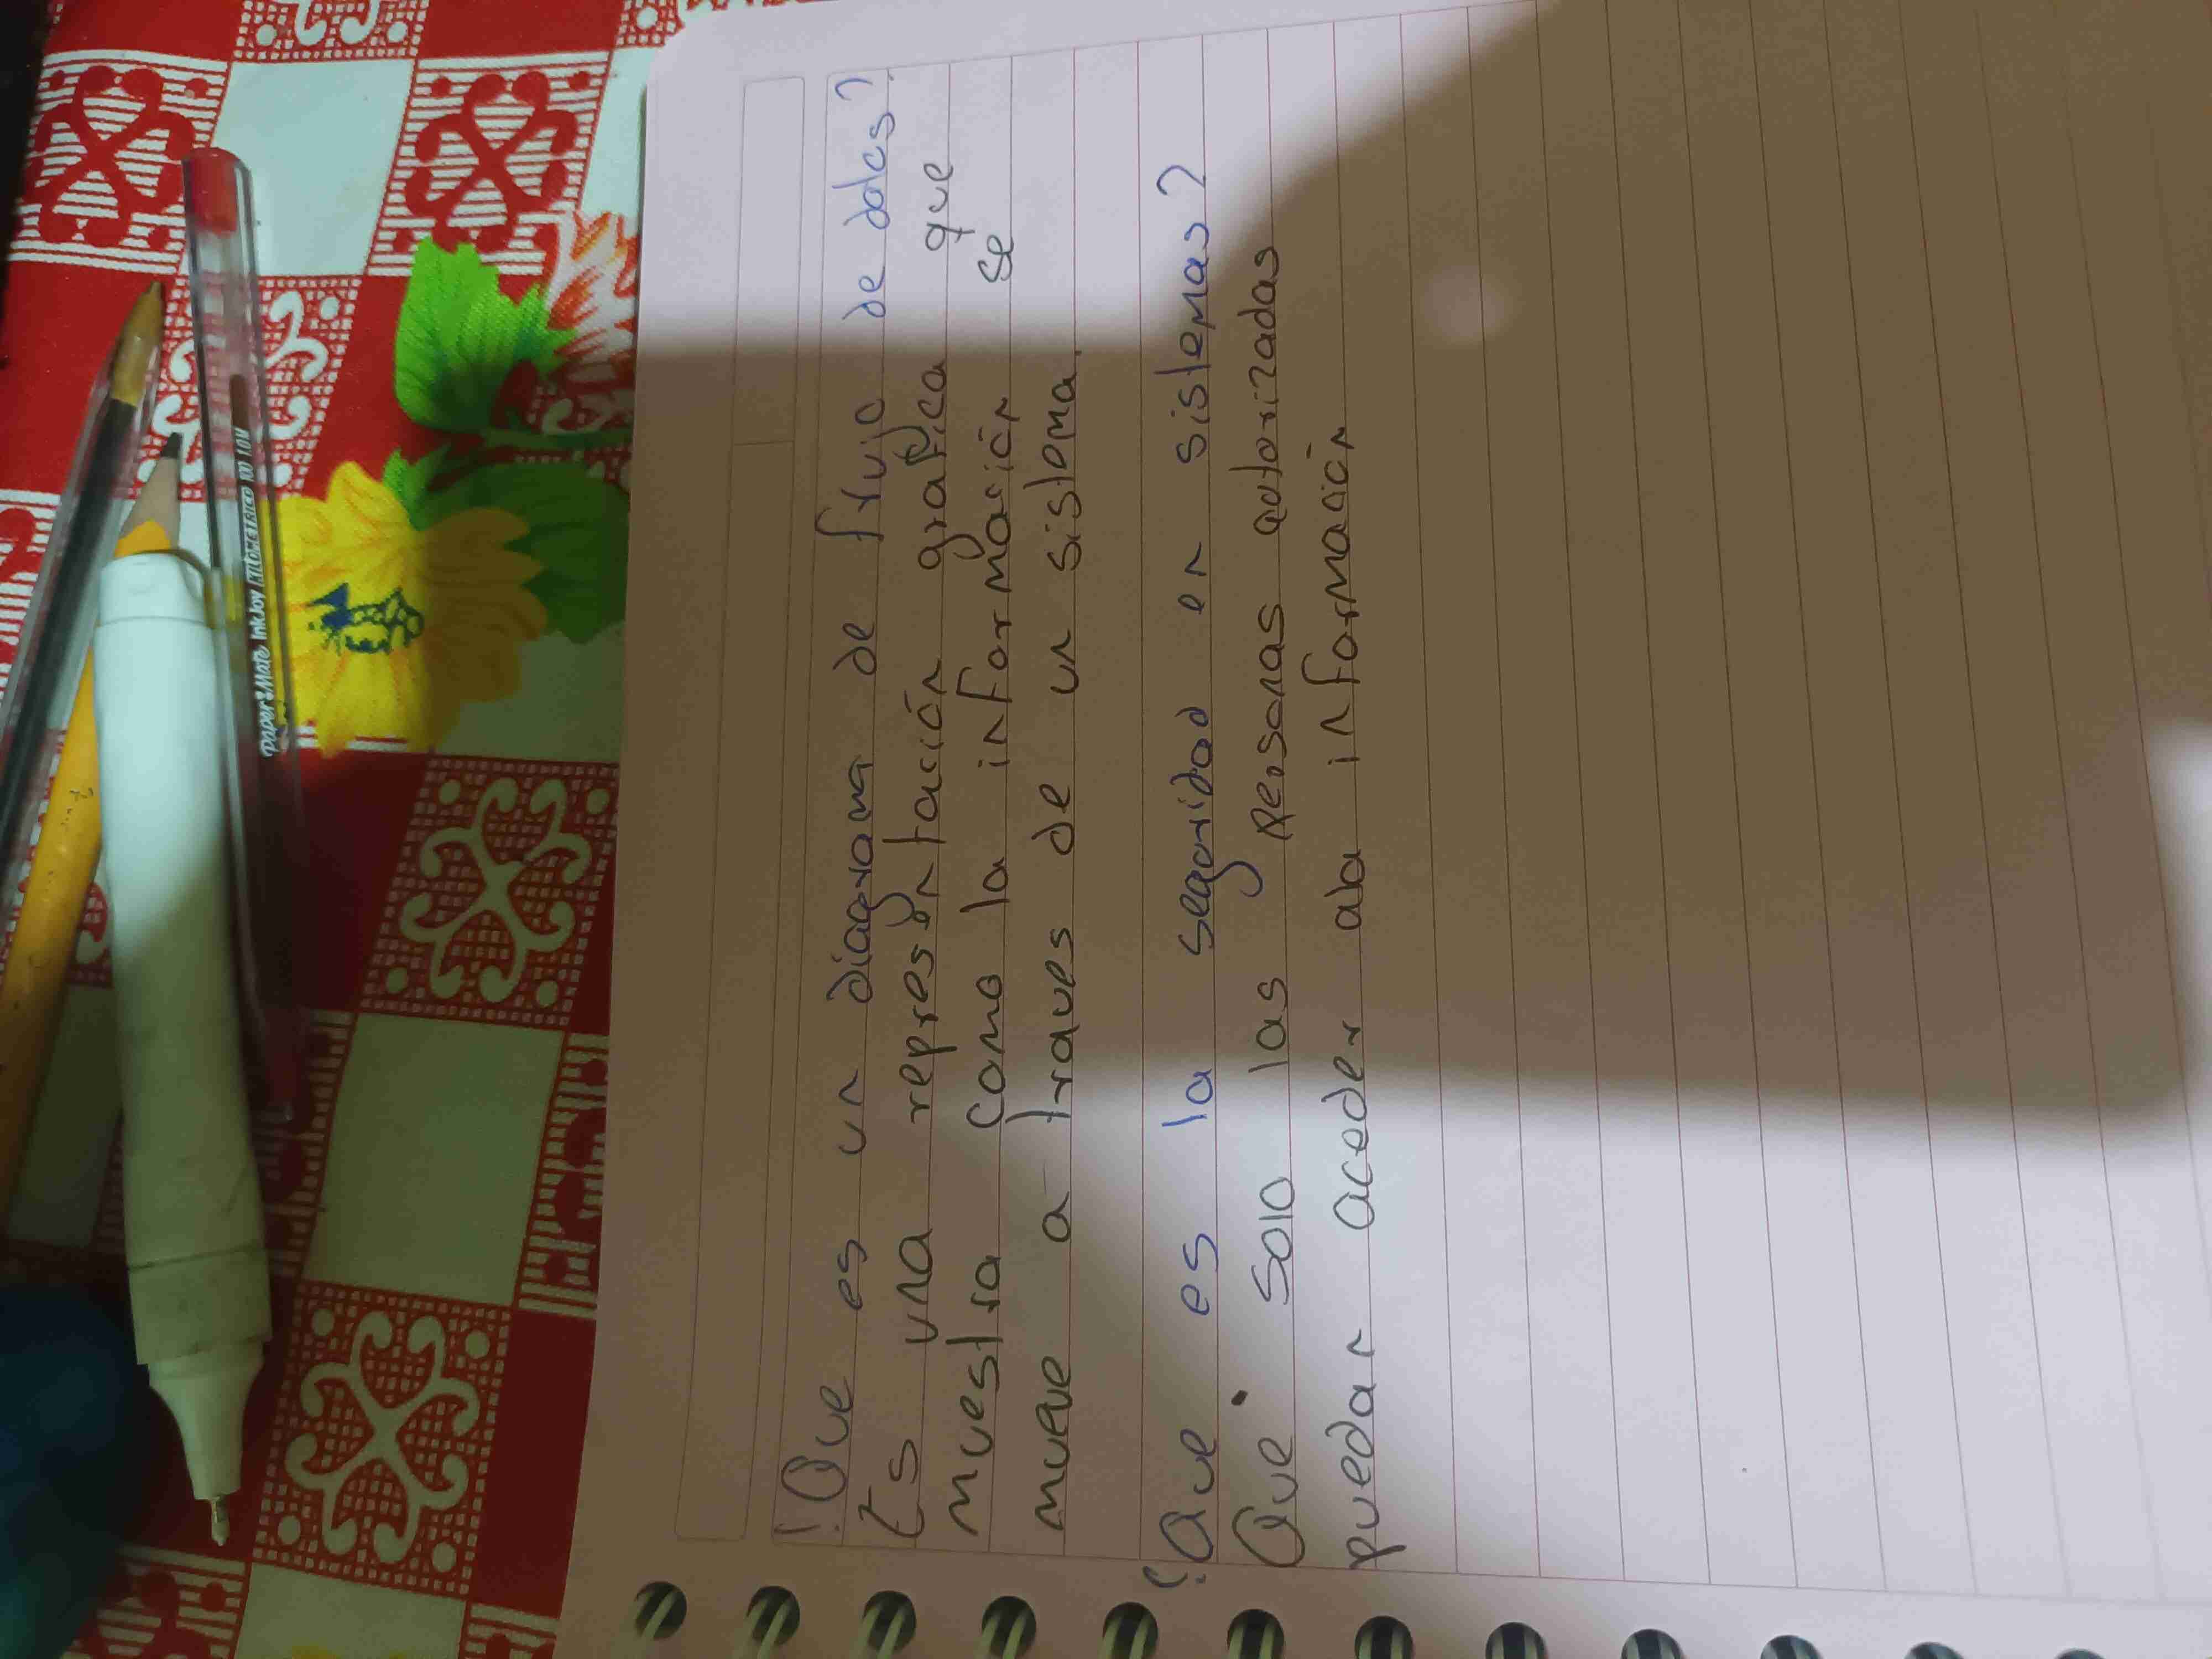 ¿Que es un diagrama de flujo de datos?
Es una representación grafica que
muestra como la información se
mueve a traves de un sistema.
¿Que es la seguridad en sistemas?
Que solo las Personas autorizadas
puedan aceder ala información
Paper:Mate InkJoy KILOMETRICO 100 1.0M